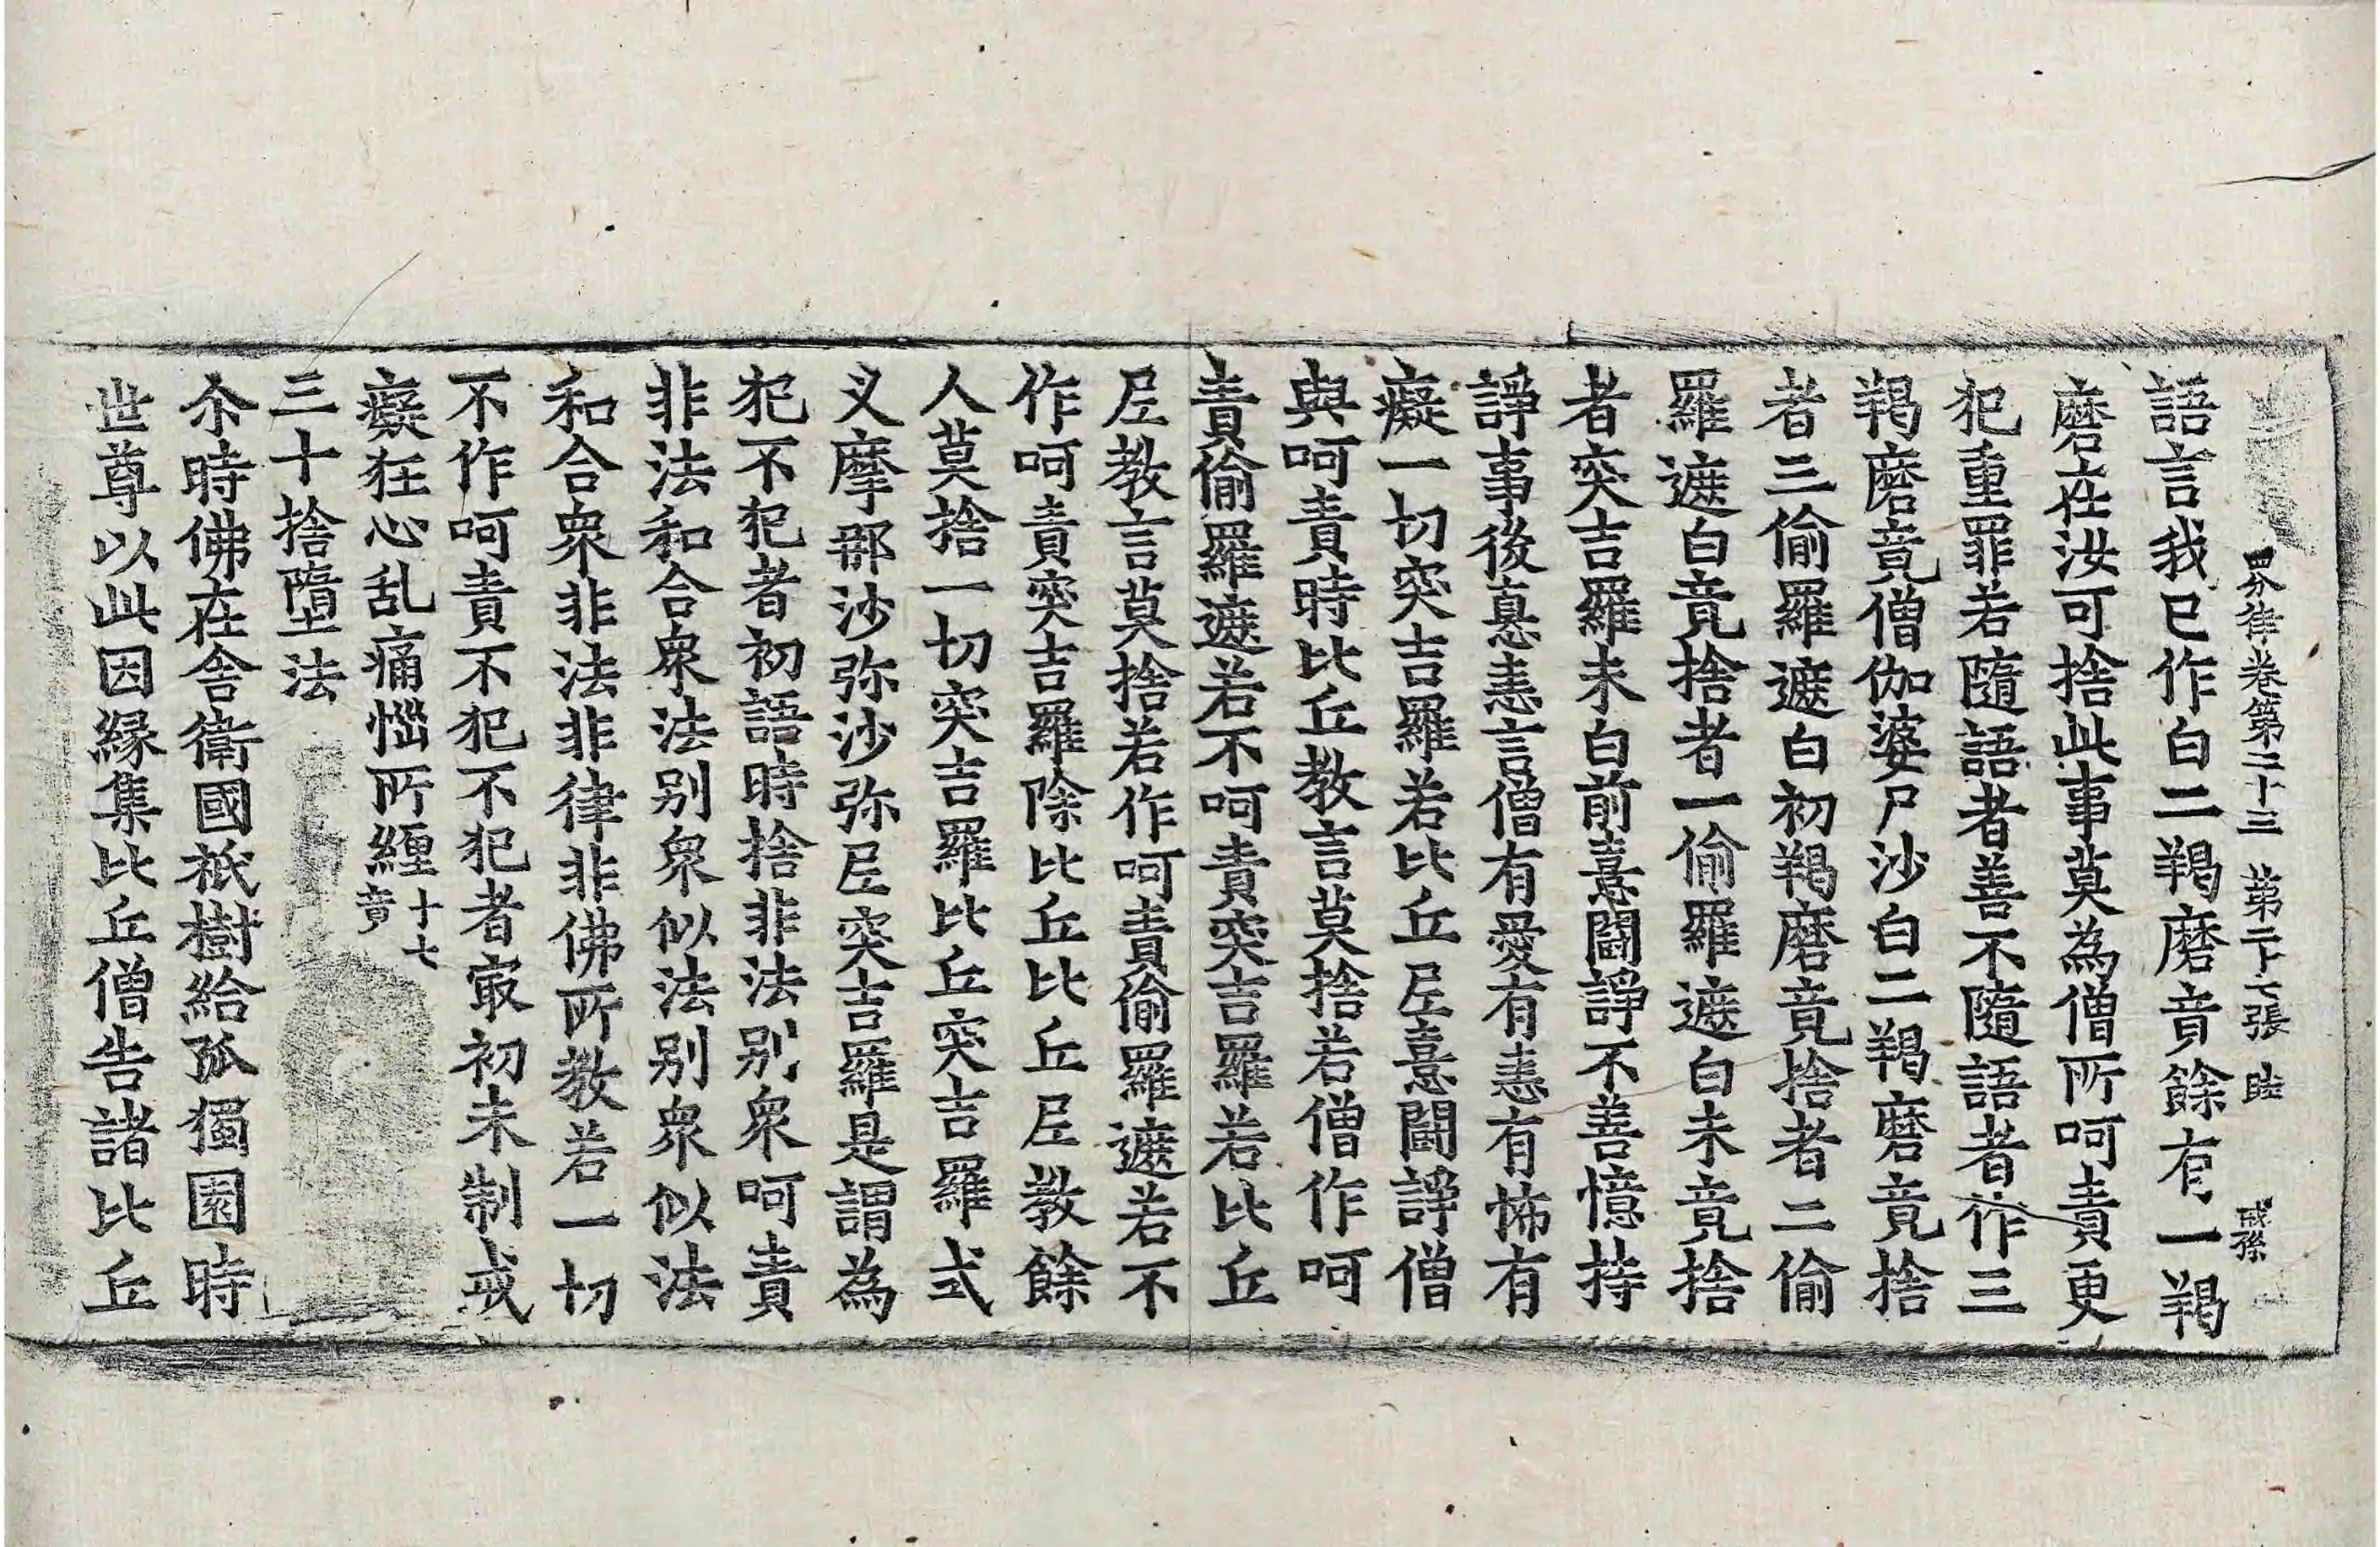 四分律卷第二十三 第二十七張 陸 戒孫
語言我已作白二羯磨竟餘有一羯
磨在汝可捨此事莫為僧所呵責更
犯重罪若隨語者善不隨語者作三
羯磨竟僧伽婆尸沙白二羯磨竟捨
者三偷羅遮白初羯磨竟捨者二偷
羅遮白竟捨者一偷羅遮白未竟捨
者突吉羅未白前憙鬪諍不善憶持
諍事後恚恚言僧有愛有恚有怖有
癡一切突吉羅若比丘尼憙鬪諍僧
與呵責時比丘教言莫捨若僧作呵
責偷羅遮若不呵責突吉羅若比丘
尼教言莫捨若作呵責偷羅遮若不
作呵責突吉羅除比丘比丘尼教餘
人莫捨一切突吉羅比丘突吉羅式
叉摩那沙弥沙弥尼突吉羅是謂為
犯不犯者初語時捨非法别衆呵責
非法和合衆法别衆似法别衆似法
和合衆非法非律非佛所教若一切
不作呵責不犯不犯者㝡初未制戒
癡狂心乱痛惱所纏十七竟
三十捨墮法
尒時佛在舍衛國祇樹給孤獨園時
世尊以此因緣集比丘僧告諸比丘